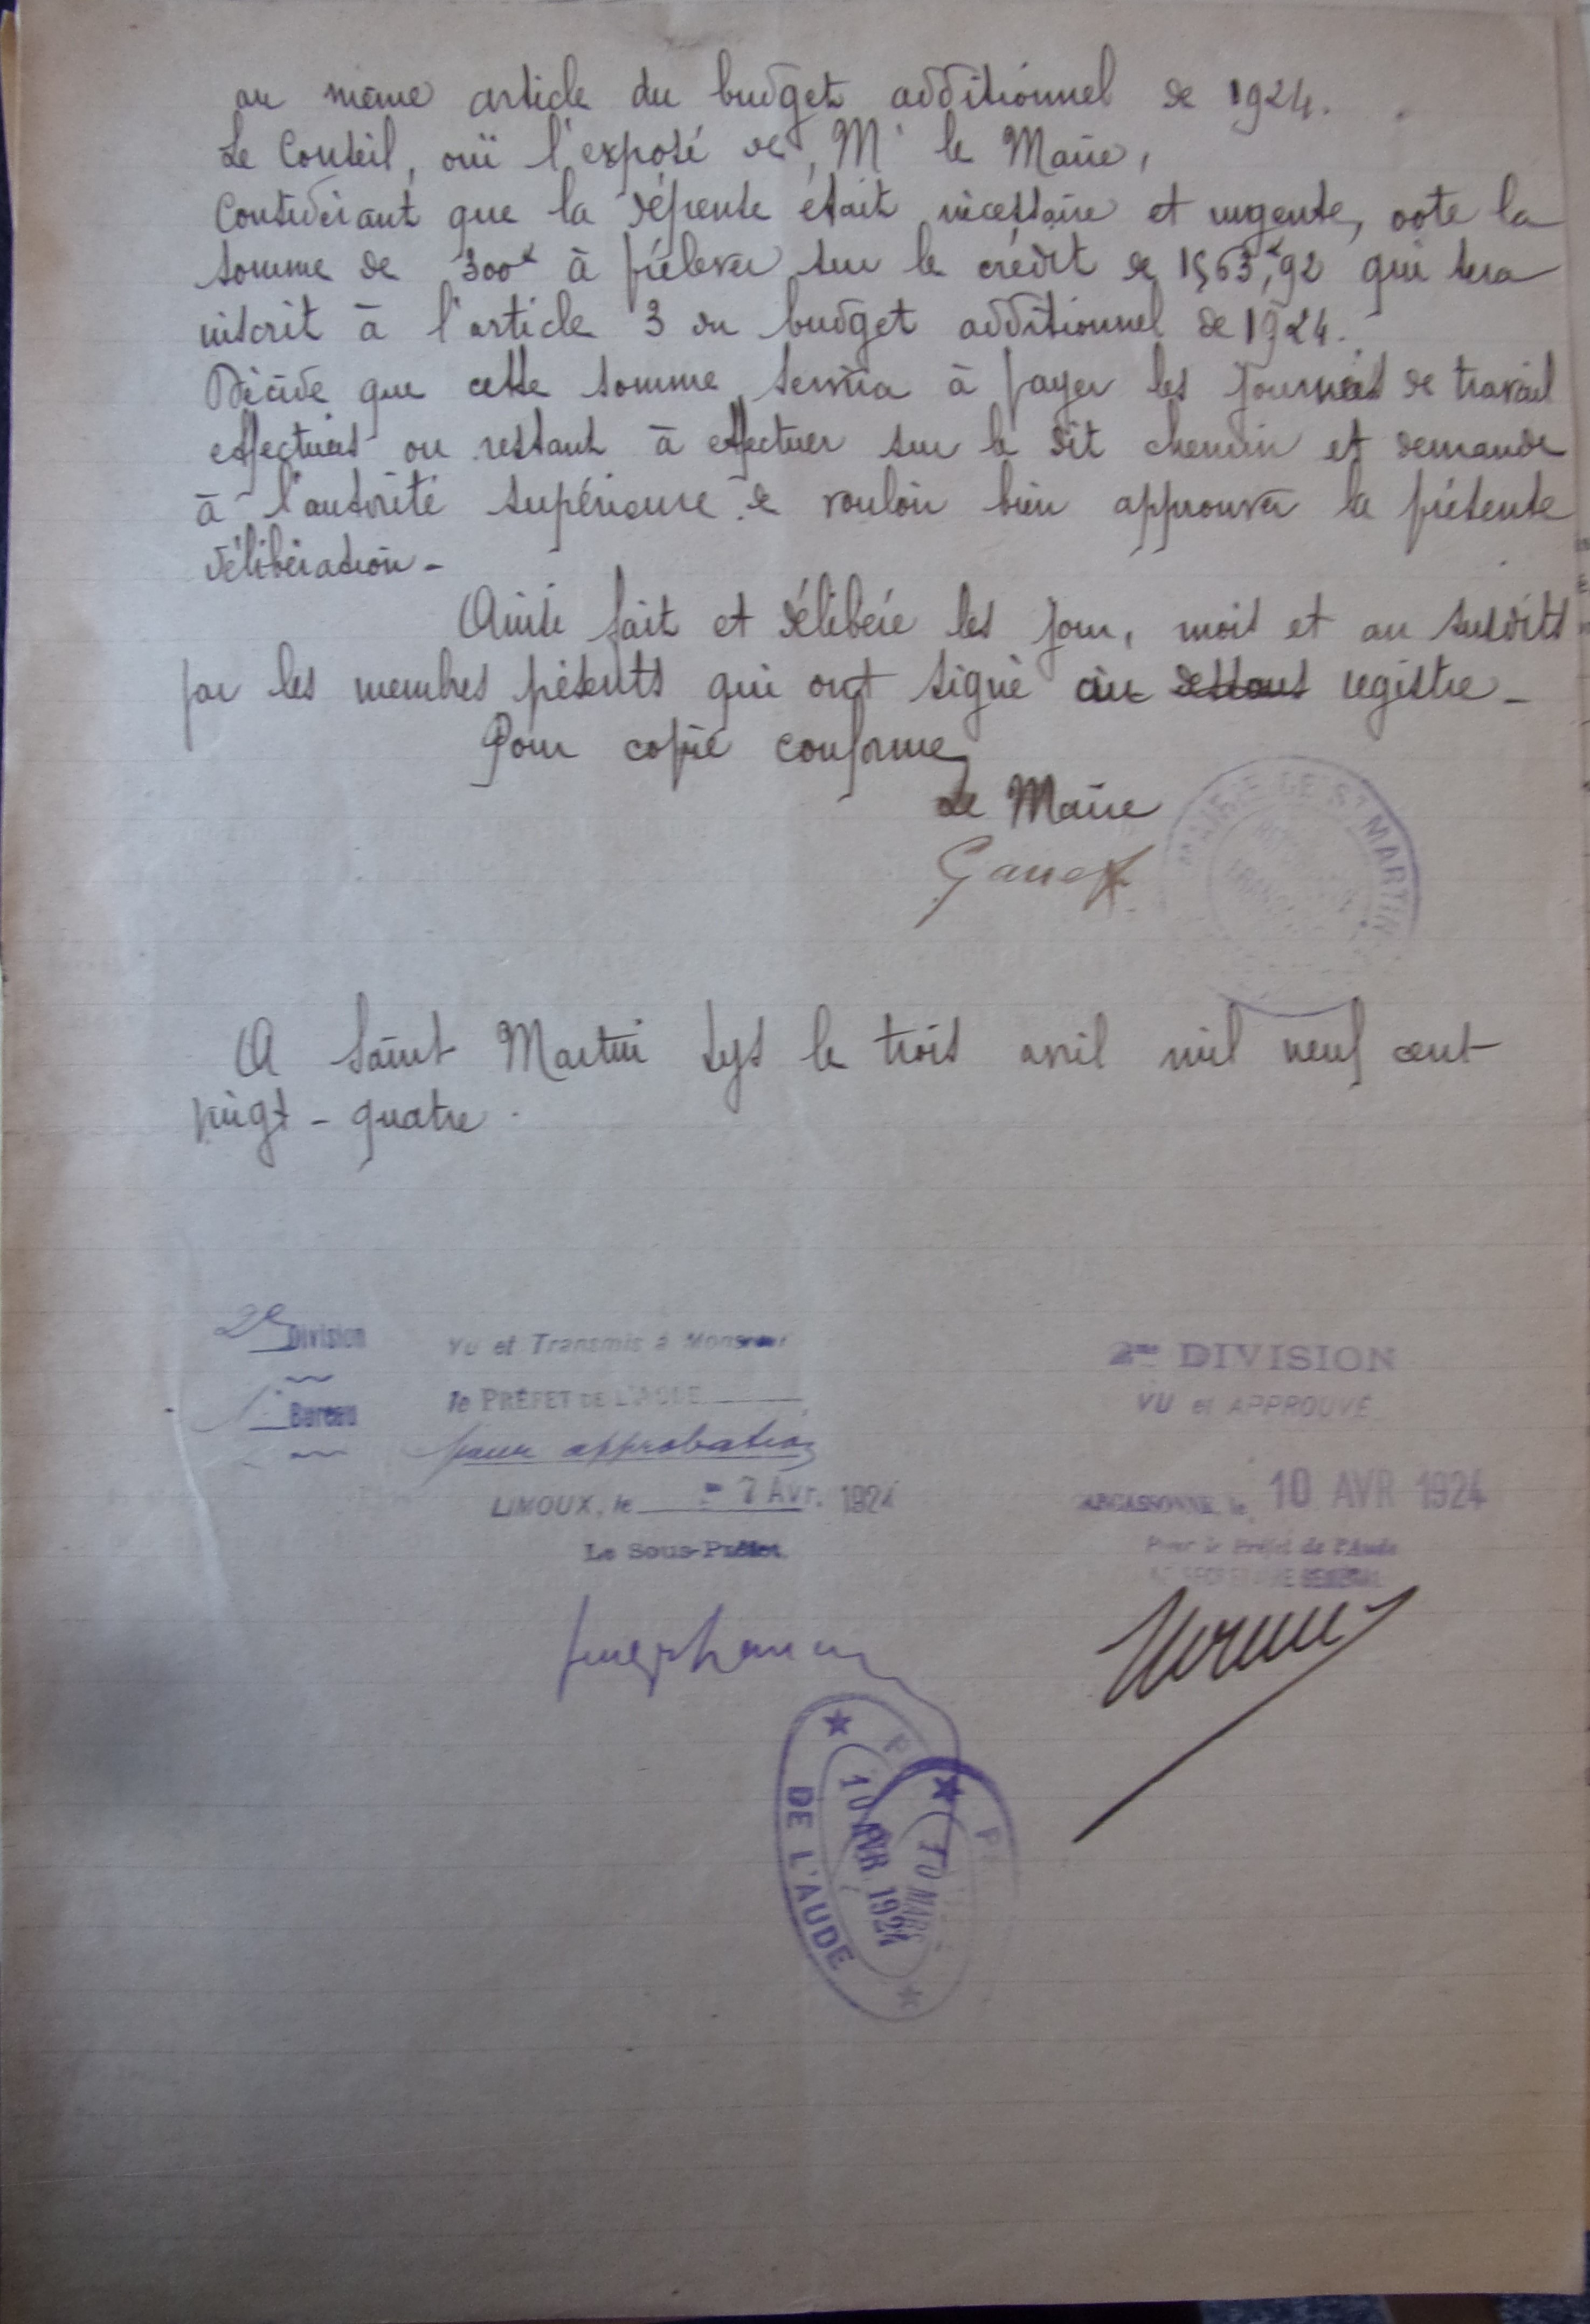 au même article du budget additionnel de 1924.
Le Conseil, ouï l'exposé de Mr le Maire,
Considérant que la dépense était nécessaire et urgente, vote la
somme de 300f à prélever sur le crédit de 1563f,92 qui sera
inscrit à l'article 3 du budget additionnel de 1924.
Décide que cette somme servira à payer les journées de travail
effectuées ou restant à effectuer sur le dit chemin et demande
à l'autorité supérieure de vouloir bien approuver la présente
délibération -
Ainsi fait et délibéré les jour, mois et an susdits
par les membres présents qui ont signé au dessous registre -
Pour copie conforme
Le Maire
MAIRIE DE St MARTIN
A Saint Martin Lys le trois avril mil neuf cent
vingt - quatre.
2e Division
1er Bureau
Vu et Transmis à Monsieur
le PRÉFET DE L'AUDE
pour approbation
LIMOUX, le - 7 Avr. 1924
Le Sous-Préfet
2me DIVISION
VU et APPROUVÉ
CARCASSONNE le, 10 AVR 1924
Pour le Préfet de l'Aude
LE SECRÉTAIRE GÉNÉRAL
10 AVR 1924
DE L'AUDE
10 MAR